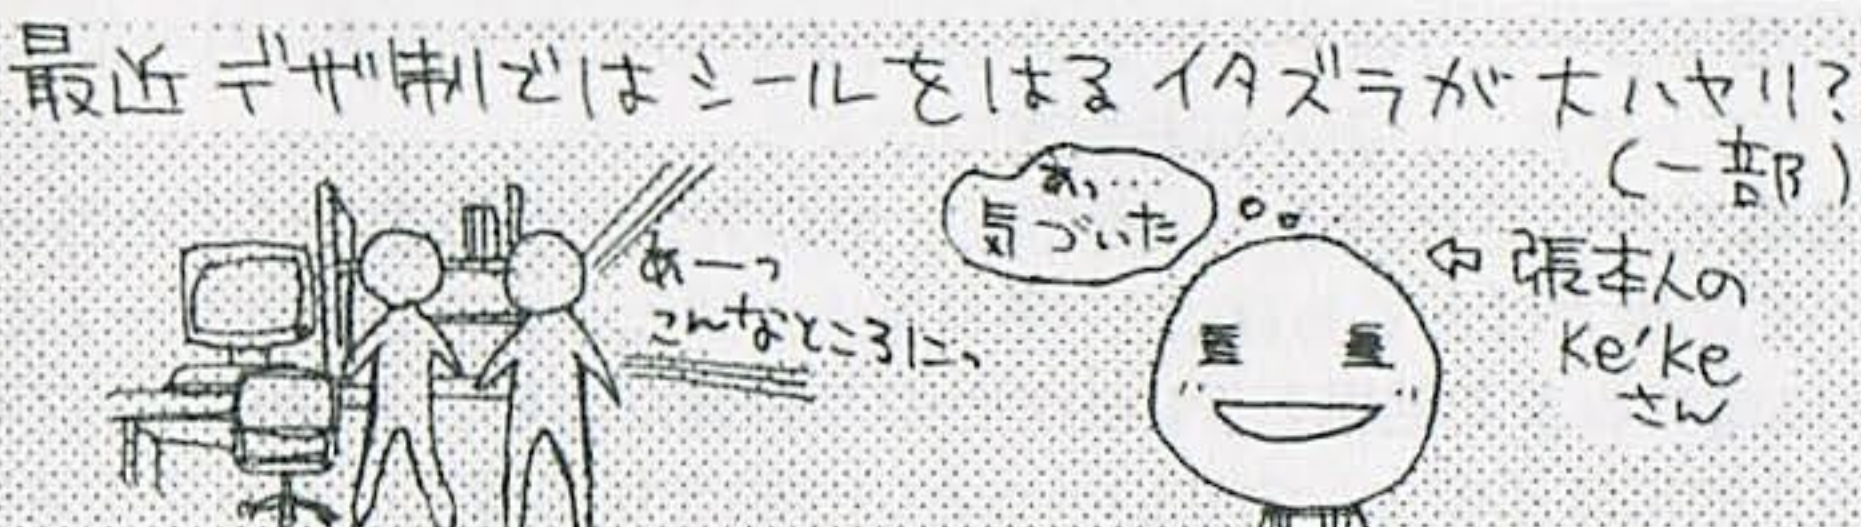 最近デザ制ではシールをはるイタズラが大ハヤリ?
(一部)
あーっ
こんなところにっ
あっ…
気づいた
⇦張本人の
Ke'Ke
さん